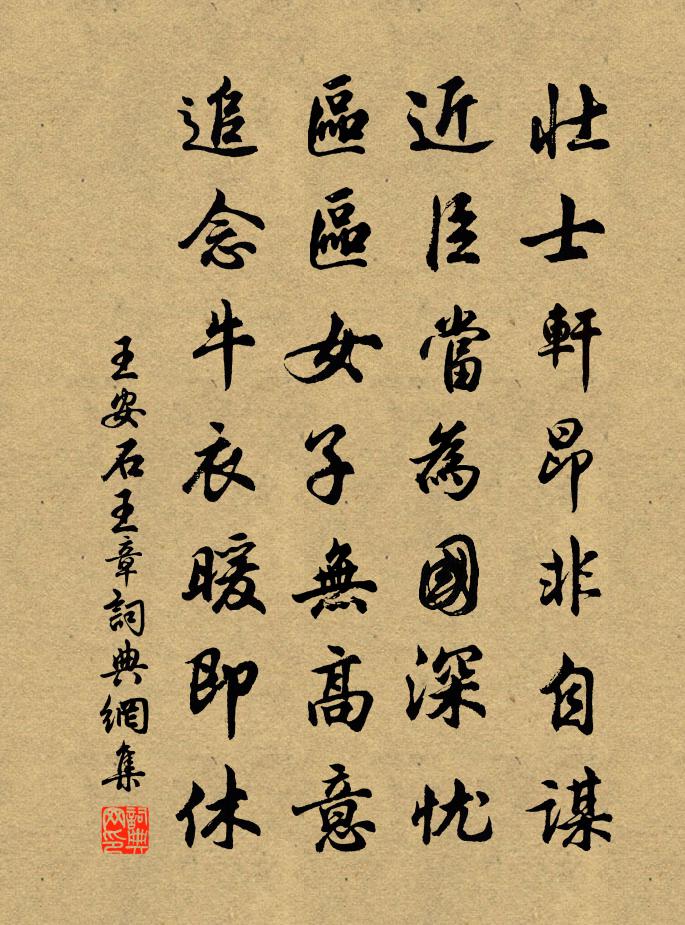 壯士軒昂非自謀
近臣當為國深忧
區區女子無高意
追念牛衣暖即休
王安石王章詞典網集
詞典网印